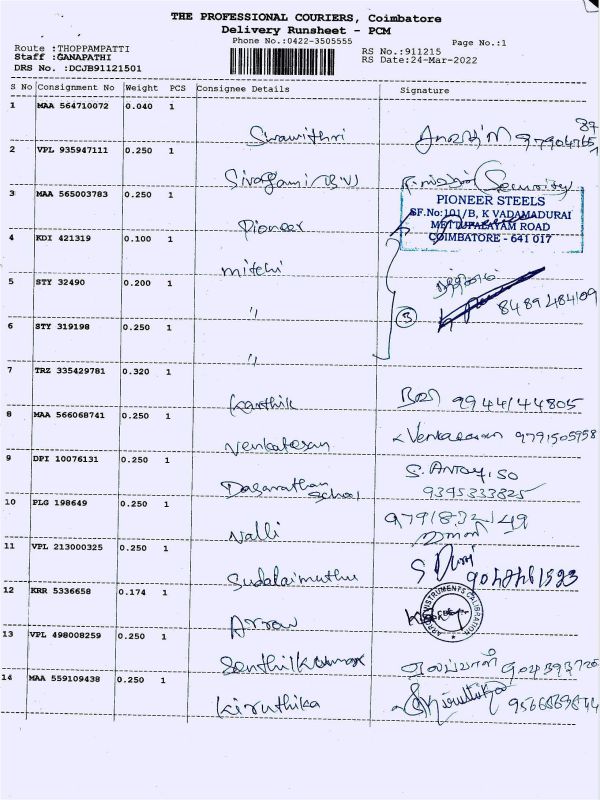 THE PROFESSIONAL COURIERS, Coimbatore
Delivery Runsheet - PCM
Phone No.:0422-3505555
Page No.:1
Route :THOPPAMPATTI
RS No.:911215
Staff :GANAPATHI
RS Date:24-Mar-2022
DRS No. :DCJB91121501
S No Consignment No Weight PCS Consignee Details Signature
1 MAA 564710072 0.040 1
2 VPL 935947111 0.250 1
Sivagami
(Security)
3 MAA 565003783 0.250 1
Pioneer
PIONEER STEELS
SF.No:101/B, K VADAMADURAI
METTUPALAYAM ROAD
COIMBATORE - 641 017
4 KDI 421319 0.100 1
mitchi
5 STY 32490 0.200 1
"
3
8489484109
6 STY 319198 0.250 1
"
7 TRZ 335429781 0.320 1
Karthik
9944144805
8 MAA 566068741 0.250 1
Venkatesan
9791505958
9 DPI 10076131 0.250 1
Dasarathan
School
9395333825
10 PLG 198649 0.250 1
Nalli
11 VPL 213000325 0.250 1
Sudalaimuthu
12 KRR 5336658 0.174 1
Arrow
INSTRUMENTS CALIBRATION
13 VPL 498008259 0.250 1
Senthilkumar
14 MAA 559109438 0.250 1
Kiruthika